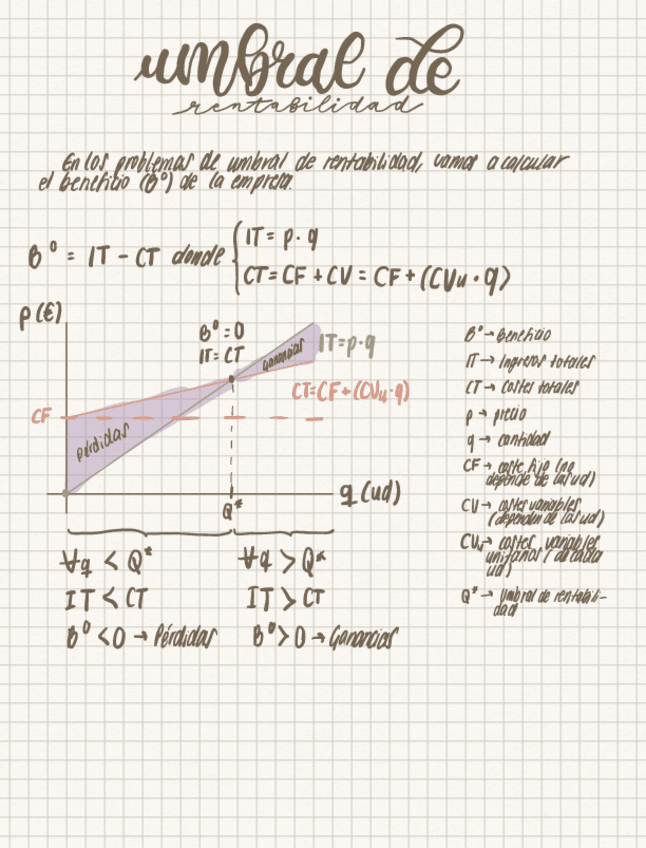 umbral de
rentabilidad
En los problemas de umbral de rentabilidad, vamos a calcular
el beneficio (Bº) de la empresa.
Bº = IT - CT donde
IT = p · q
CT = CF + CV = CF + (CVu · q)
p (€)
Bº = 0
IT = CT
ganancias
IT = p · q
CT = CF + (CVu · q)
CF
pérdidas
q (ud)
Q*
∀q < Q*
IT < CT
Bº < 0 → Pérdidas
∀q > Q*
IT > CT
Bº > 0 → Ganancias
Bº → beneficio
IT → Ingresos totales
CT → costes totales
p → precio
q → cantidad
CF → coste fijo (no
depende de las ud)
CV → costes variables
(dependen de las ud)
CVu → costes variables
unitarios (de cada
ud)
Q* → Umbral de rentabili-
dad